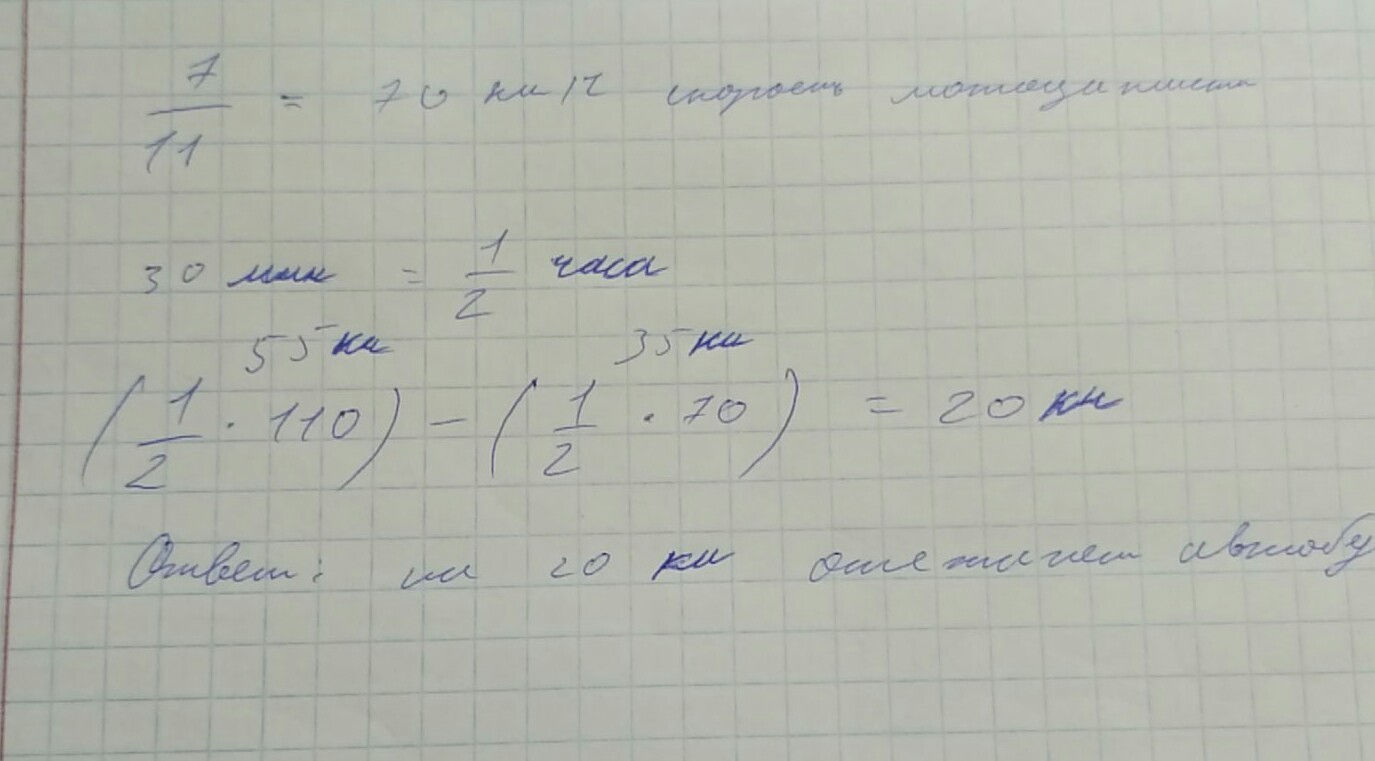 7/11 = 70 км/ч скорость мотоциклиста
30 мин = 1/2 часа
55 км 35 км
(1/2 · 110) - (1/2 · 70) = 20 км
Ответ: на 20 км